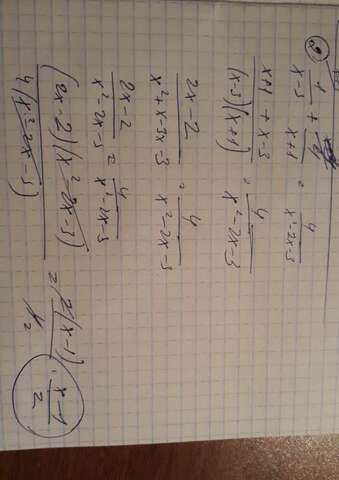 1/(x-3) + 1/(x+1) = 4/(x²-2x-3)
(x+1 + x-3)/((x-3)(x+1)) = 4/(x²-2x-3)
(2x-2)/(x²+x-3x-3) = 4/(x²-2x-3)
(2x-2)/(x²-2x-3) = 4/(x²-2x-3)
(2x-2)(x²-2x-3)/(4(x²-2x-3)) = 2(x-1)/4 2 = (x-1)/2